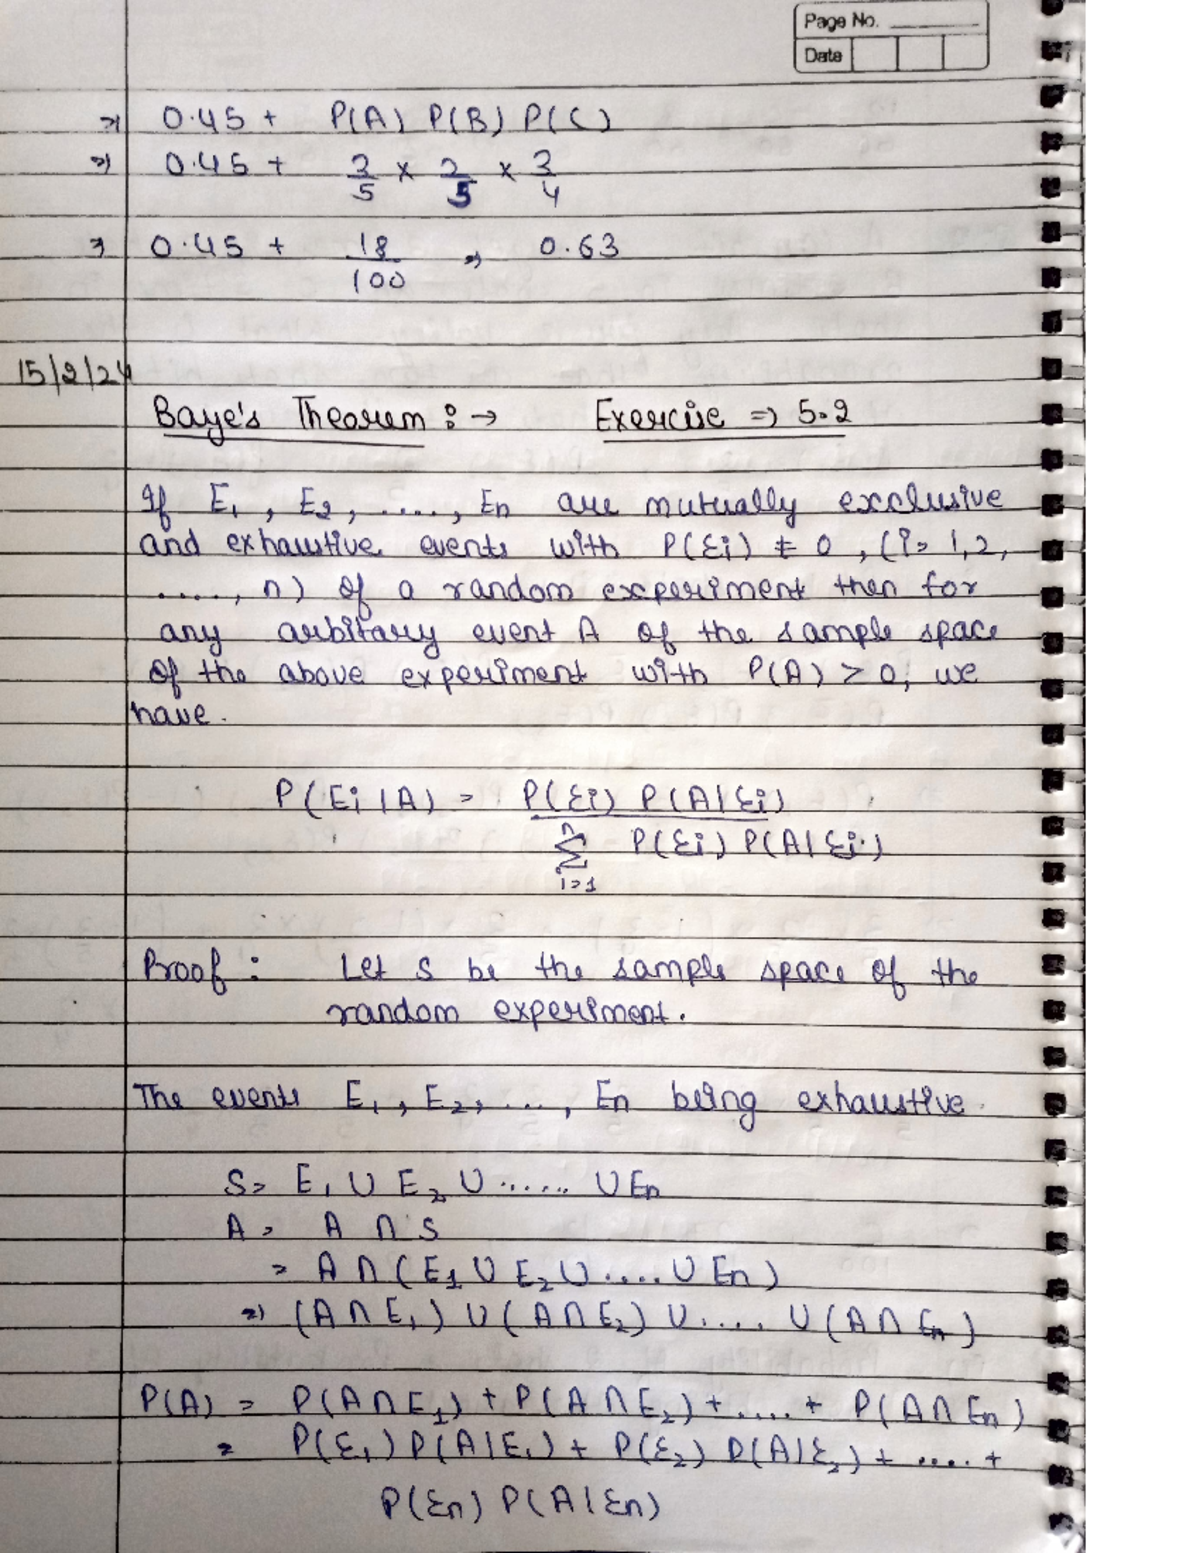 Page No.
Date
⇒ 0.45 + P(A) P(B) P(C)
⇒ 0.45 + 3/5 × 2/5 × 3/4
⇒ 0.45 + 18/100 ⇒ 0.63
15/2/24
Baye's Theorem : → Exercise ⇒ 5.2
If E1, E2, ...., En are mutually exclusive
and exhaustive events with P(Ei) ≠ 0, (i = 1,2,
....., n) of a random experiment then for
any arbitary event A of the sample space
of the above experiment with P(A) > 0, we
have.
P(Ei | A) = P(Ei) P(A|Ei)
n
Σ P(Ei) P(A|Ei)
i=1
Proof : Let S be the sample space of the
random experiment.
The events E1, E2, ..., En being exhaustive.
S = E1 ∪ E2 ∪ ...... ∪ En
A = A ∩ S
= A ∩ (E1 ∪ E2 ∪ .... ∪ En)
⇒ (A ∩ E1) ∪ (A ∩ E2) ∪ .... ∪ (A ∩ En)
P(A) = P(A ∩ E1) + P(A ∩ E2) + .... + P(A ∩ En)
= P(E1) P(A|E1) + P(E2) P(A|E2) + .... +
P(En) P(A|En)